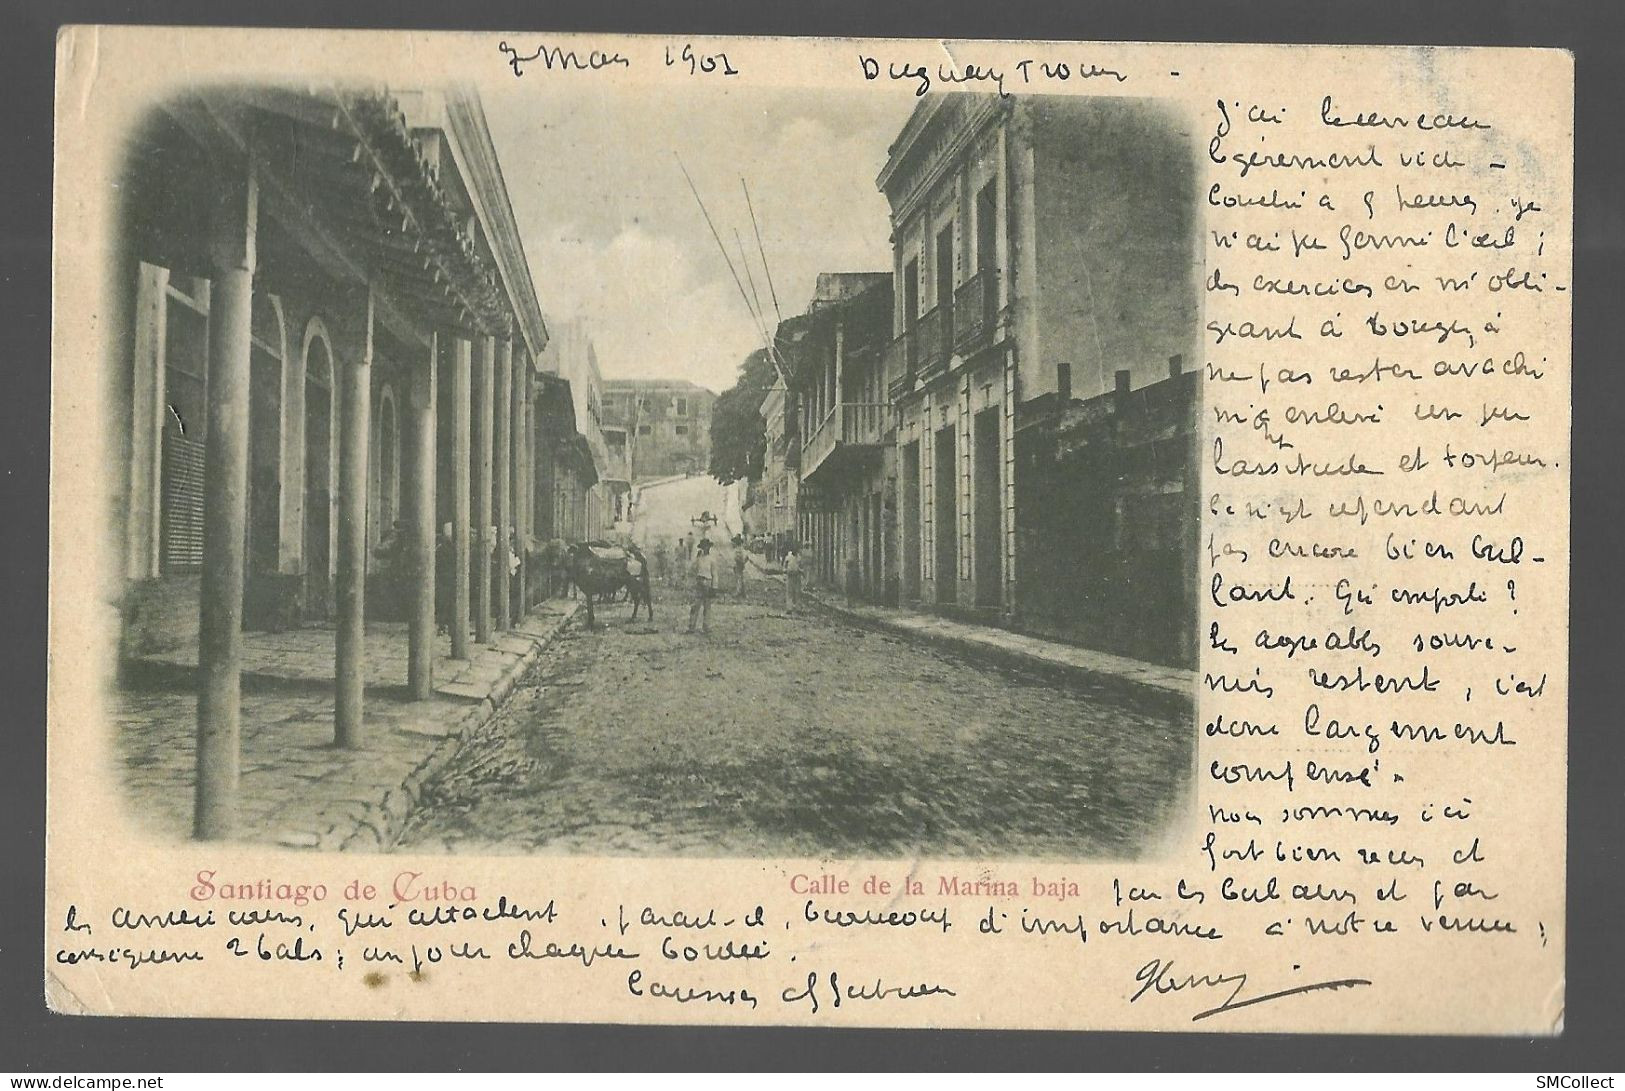 7 Mars 1901 Duguay Trouin -
J'ai le cerveau
légèrement vide -
Couché à 5 heures. je
n'ai pu fermé l'œil ;
des exercices en m'obli-
geant à bouger, à
ne pas rester avachi
m'ont enlevé un peu
lassitude et torpeur.
Ce n'est cependant
pas encore bien bril-
lant. Qu'importe ?
les agréables souve-
nirs restent, c'est
donc largement
compensé.
nous sommes ici
fort bien reçus et
Santiago de Cuba Calle de la Marina baja
par les Cubains et par
les américains, qui attachent, parait-il, beaucoup d'importance à notre venue ;
conséquence 2 bals ; un pour chaque bordée.
Caresses affectueuses Henry
SMCollect